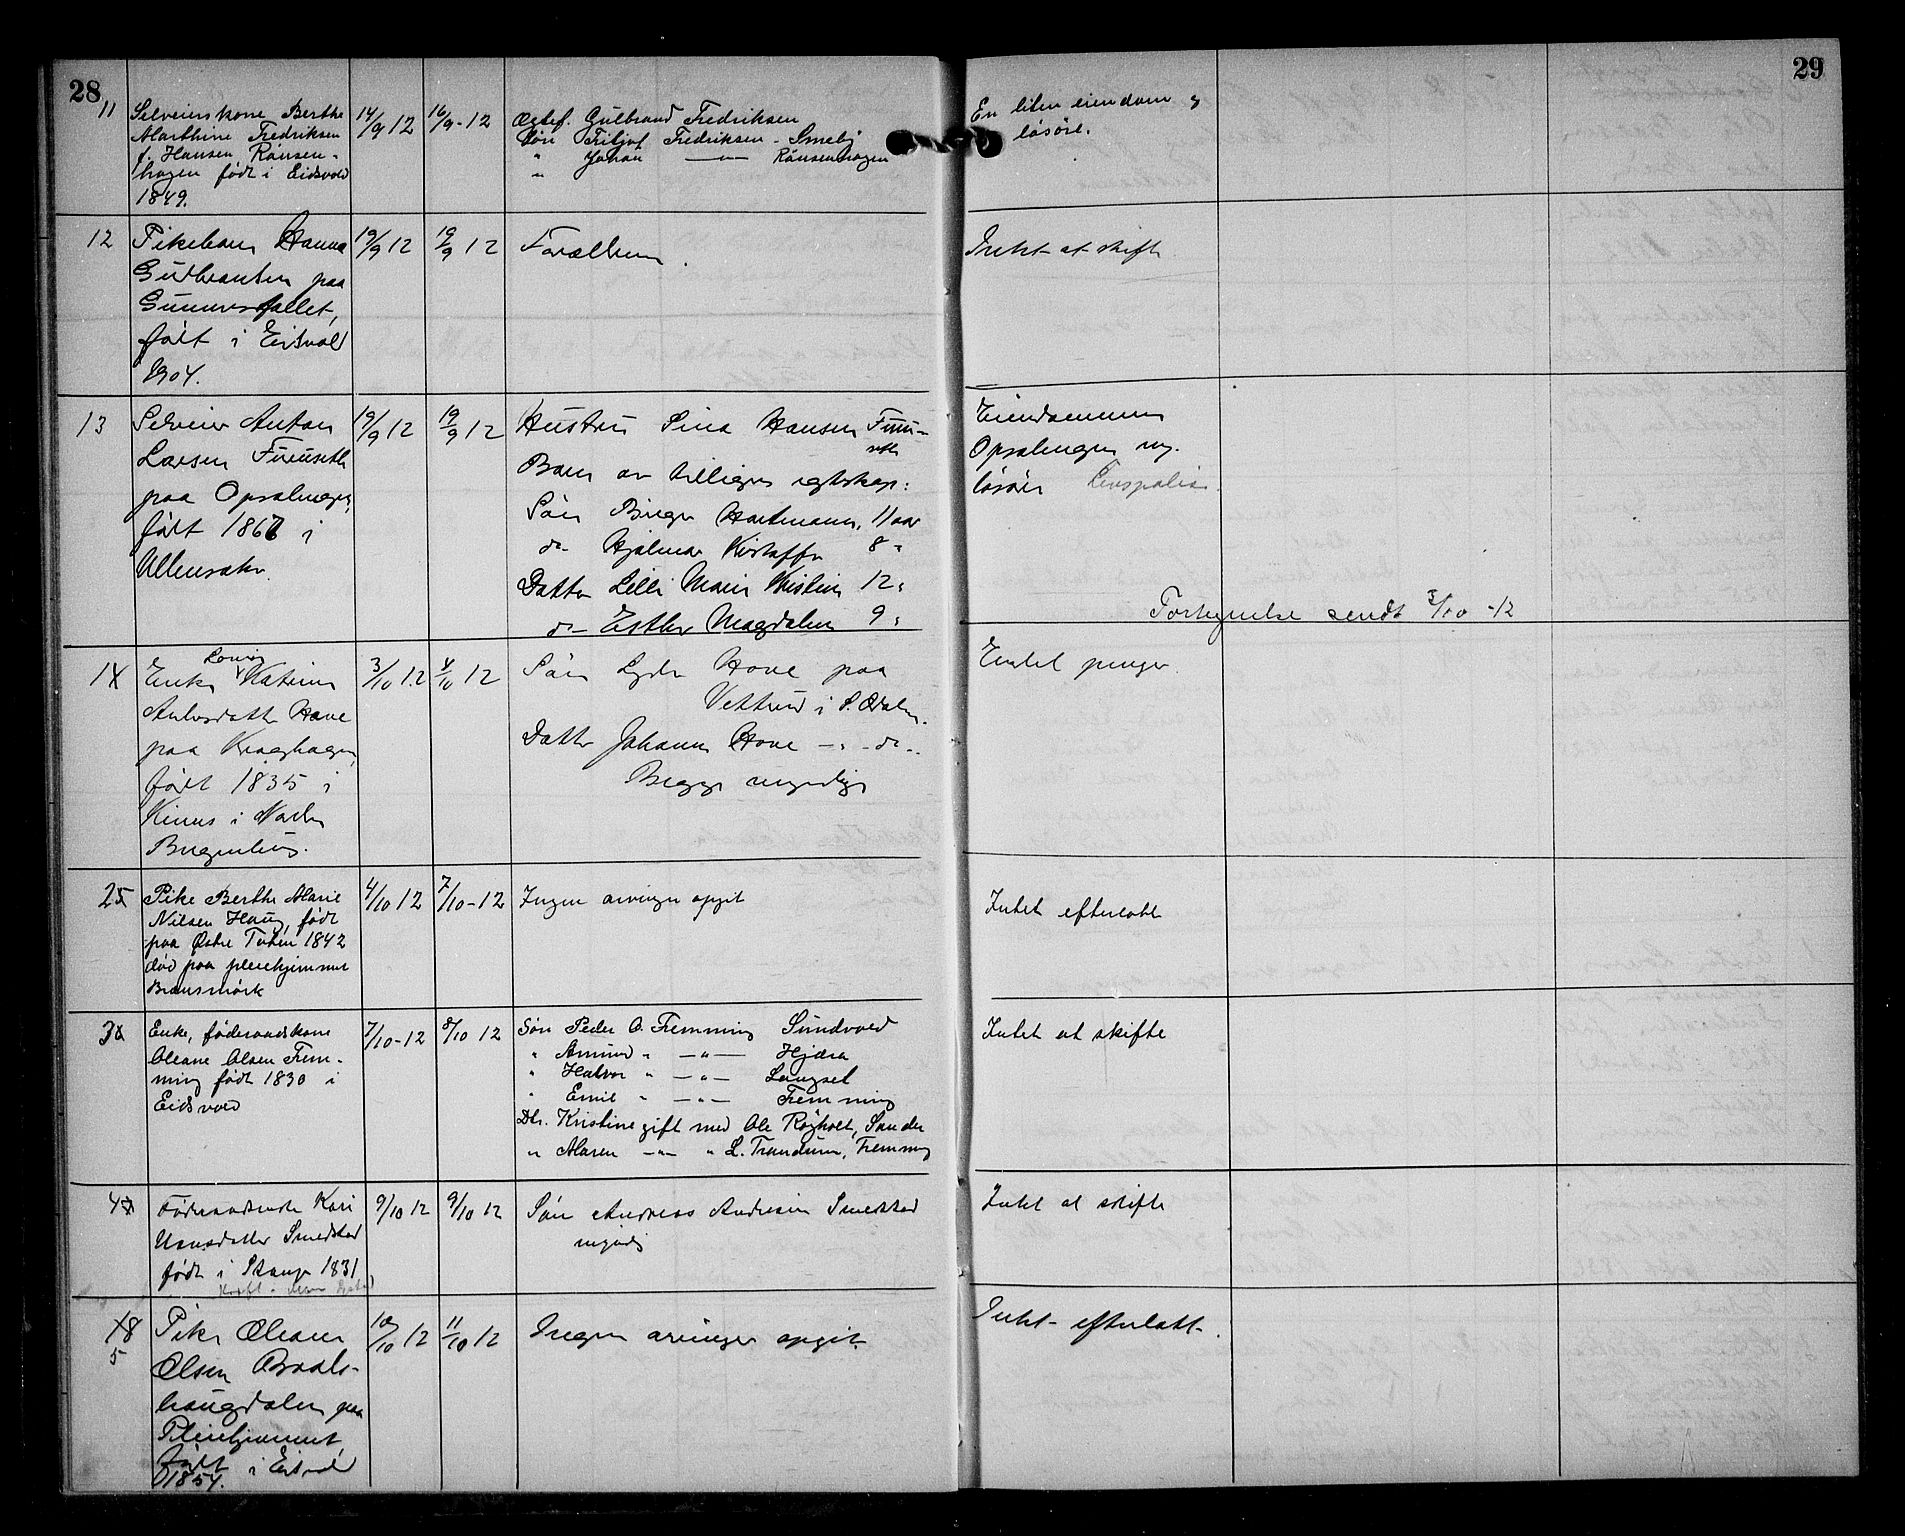 28
29
11
Selveierskone Berthe
Marthine Fredriksen
f. Hansen, Rånsen-
hagen født i Eidsvold
1849.
14/9 12
16/9-12
Ægtef. Gulbrand Fredriksen
Søn Fritjof Fredriksen - Smeby
" Johan —"— Rånsenhagen
En liten eiendom og
løsøre.
12
Pikebarn Hanna
Gudbrantsen paa
født i Eidsvold
1904.
19/9 12
19/9 12
Forældrene.
Intet at skifte
13
Selveier Anton
Larsen Furuseth
paa Opsalengen,
født 1867 i
Ullensaker.
19/9 12
19/9 12
Hustru Lina Hansen Furu-
seth
Barn av tidligere egteskap:
Søn Birger Hartmann, 11 aar
do Hjalmar Kristoffer 8 "
Datter Lilli Marie Kristine 12 "
do Esther Magdalene 9 "
Eiendommen
Opsalengen og
løsøre Livspolise.
Fortegnelse sendt 3/10 -12
14
Enke Lovise Katrine
Hove
paa Kraghagen,
født 1835 i
Kinns i Nordre
Bergenhus.
3/10 12
4/10 12
Søn Hove paa
Vettrud i S. Odalen.
Datter Johanne Hove —"— do —
Begge myndige
Endel penger.
25
Pike Berthe Marie
Nilsen Haug, født
paa Østre Toten 1842
død paa pleiehjemmet
Bransmørk
4/10 12
7/10-12
Ingen arvinger opgit
Intet efterlatt
3
Enke, føderaadskone
Oleane Olsen Frem-
ming født 1830 i
Eidsvold
7/10-12
8/10 12
Søn Peder O. Fremming Sundvold
" Amund " —"— Hjæra
" Halvor " —"— Langset
" Emil " —"— Fremming
Dtr. Kristine gift med Ole Røyholt, Sander
" Maren —"— " L. Trandum, Fremming
Intet at skifte
4
Føderaadsenke Kari
Hansdatter Smedstad
født i Stange 1831
9/10 12
9/10 12
Søn Andreas Andresen Smedstad
myndig
Intet at skifte
18
5
Pike Oleane
Olsen Braals-
haugdalen paa
Pleiehjemmet,
født i Eidsvold
1854.
10/10 12
11/10 12
Ingen arvinger opgit.
Intet efterlatt.